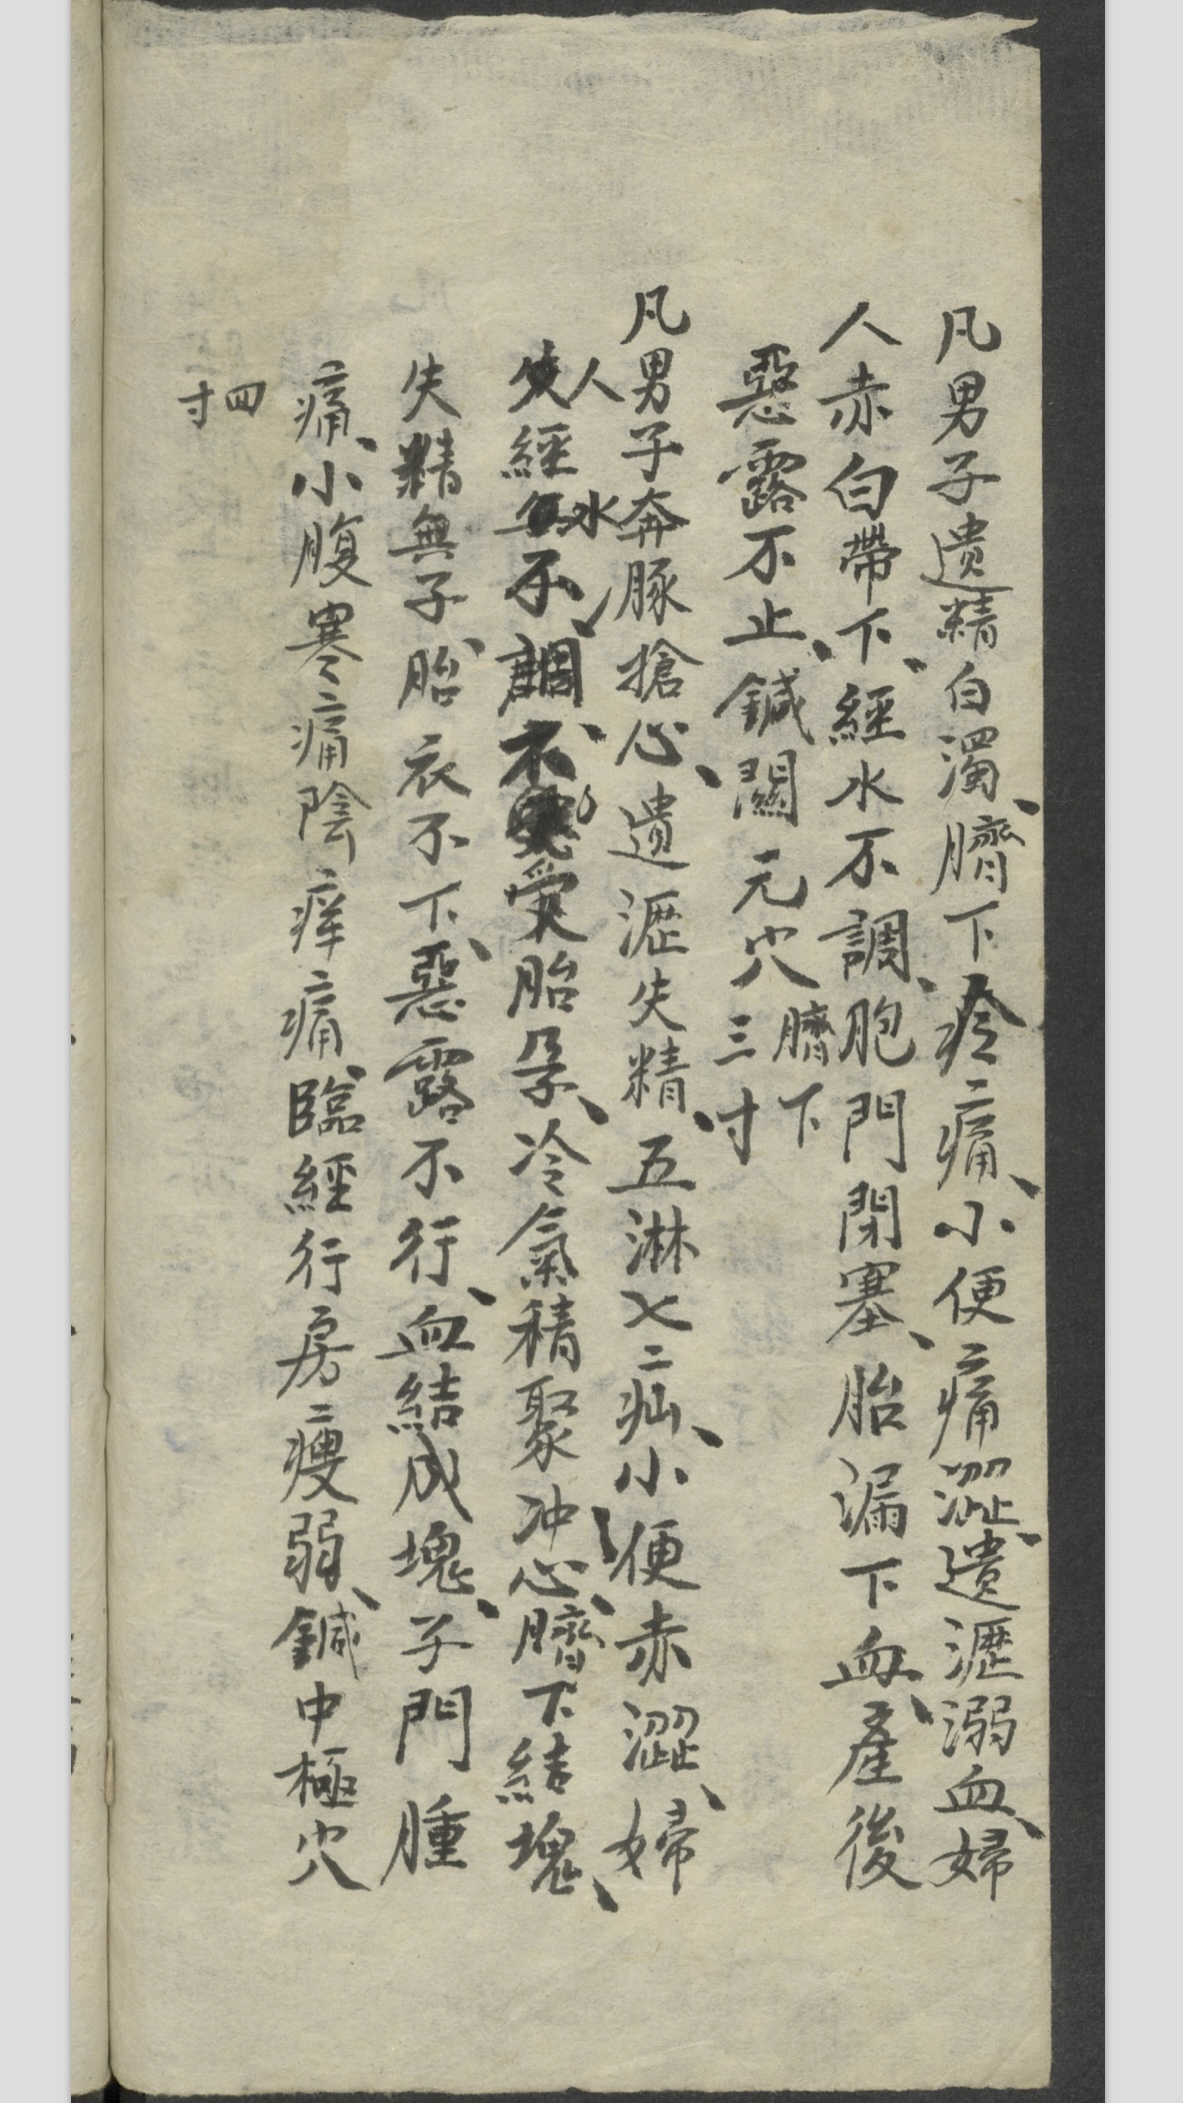 凡男子遺精白濁、臍下疼痛、小便痛澀、遺瀝溺血、婦
人赤白帶下、經水不調、胞門閉塞、胎漏下血、產後
惡露不止、鍼關元穴臍下三寸
凡男子奔豚搶心、遺瀝失精、五淋七疝、小便赤澀、婦
人經水不調、不受胎孕、冷氣積聚冲心、臍下結塊、
失精無子、胎衣不下、惡露不行、血結成塊、子門腫
痛、小腹寒痛陰痒痛、臨經行房瘦弱、鍼中極穴
四寸